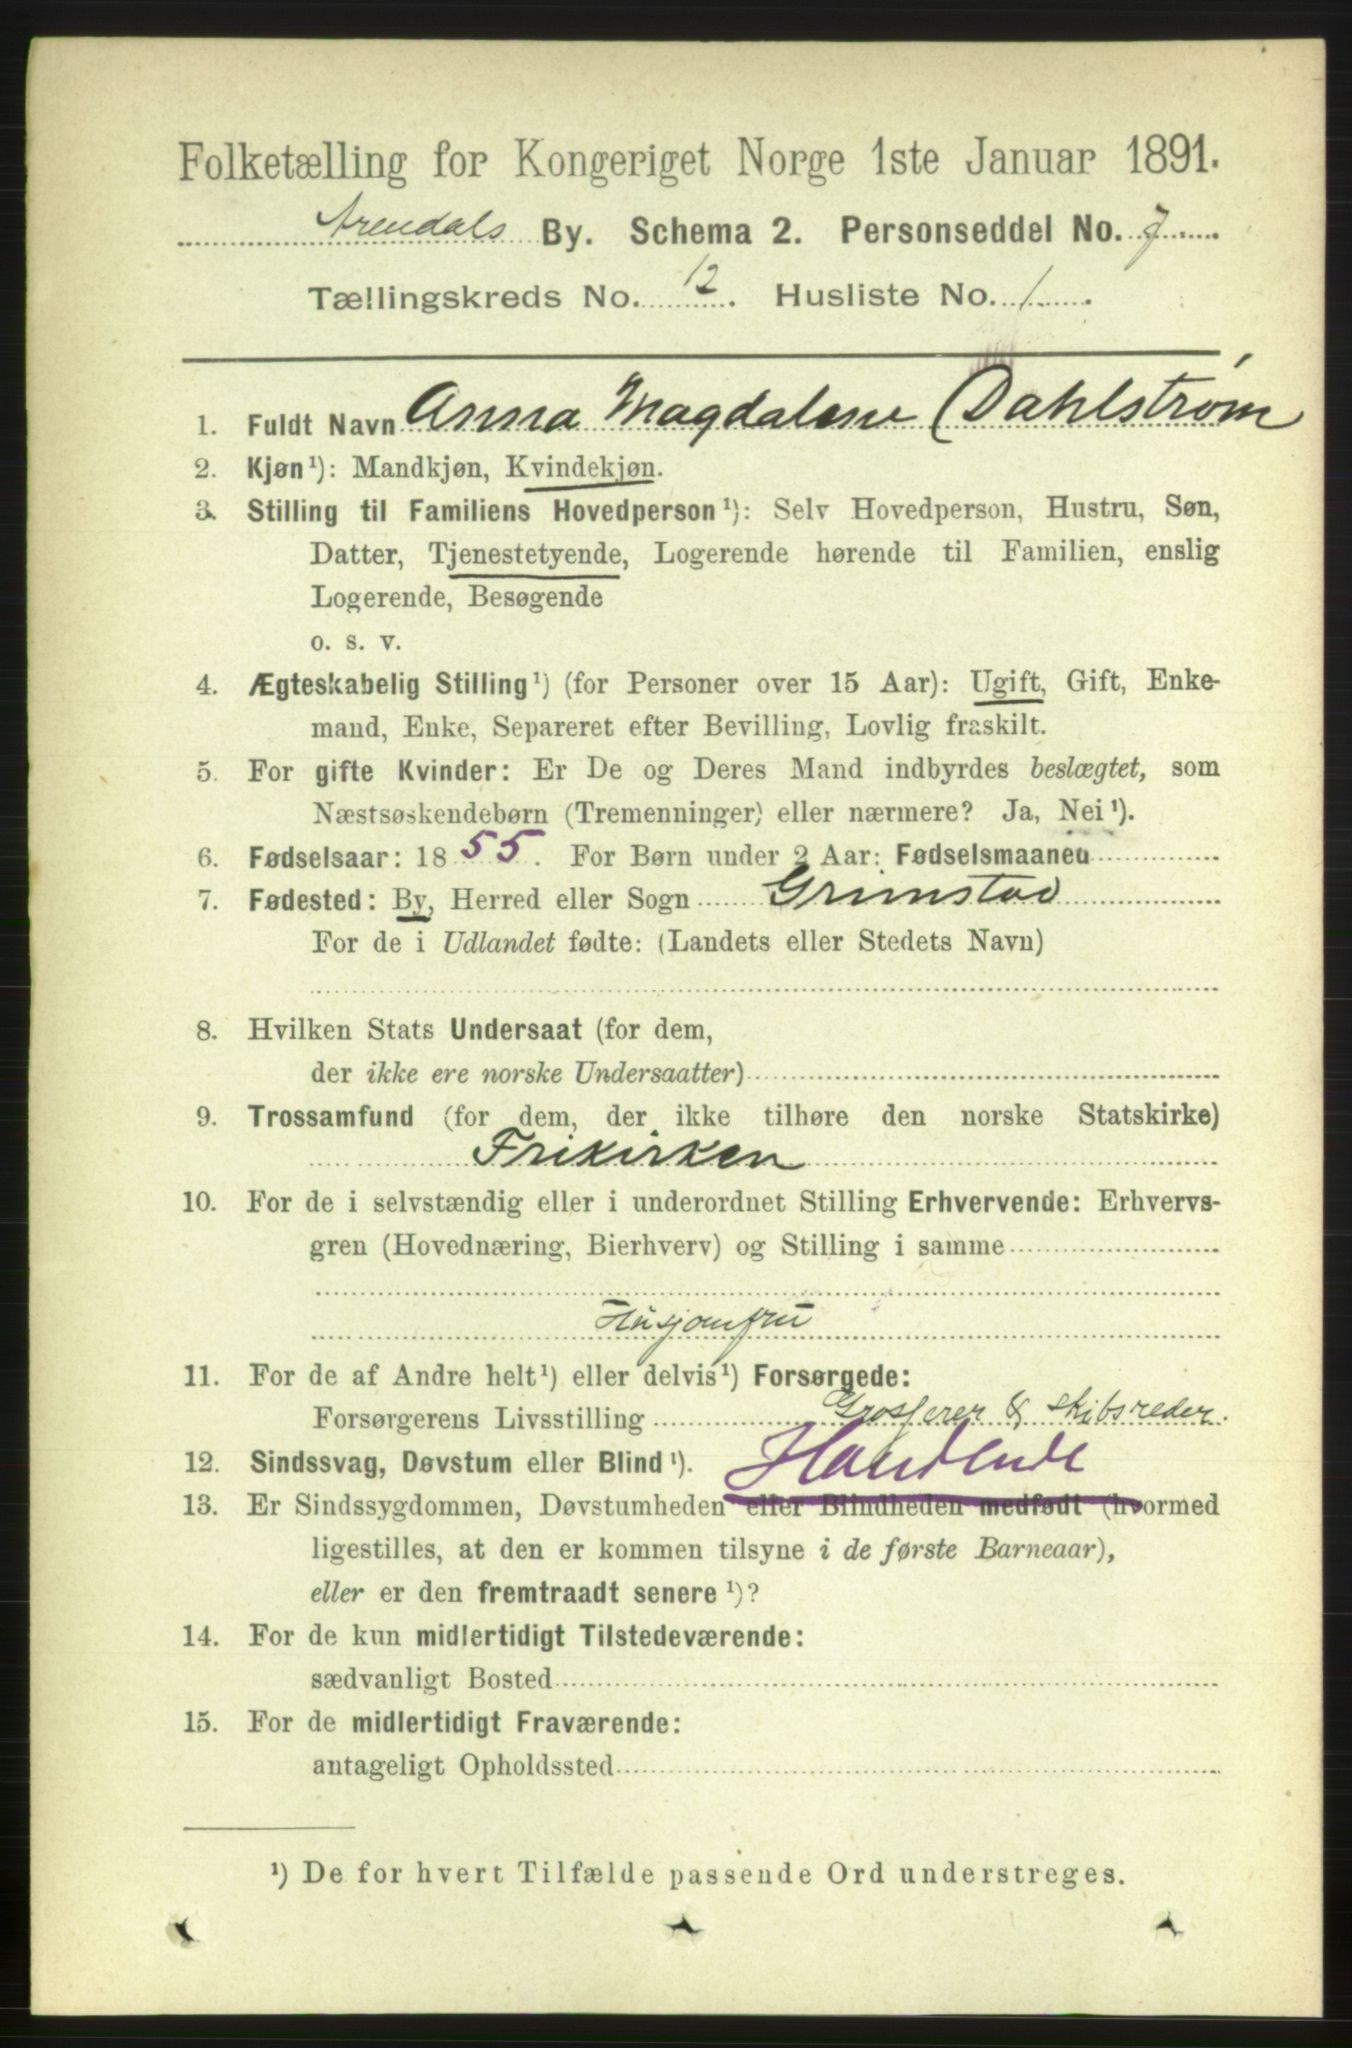 Folketælling for Kongeriget Norge 1ste Januar 1891.
Arendals By. Schema 2. Personseddel No. 7
Tællingskreds No. 12. Husliste No. 1.
1. Fuldt Navn Anna Magdalene Dahlstrøm
2. Kjøn¹): Mandkjøn, Kvindekjøn.
3. Stilling til Familiens Hovedperson¹): Selv Hovedperson, Hustru, Søn,
Datter, Tjenestetyende, Logerende hørende til Familien, enslig
Logerende, Besøgende
o. s. v.
4. Ægteskabelig Stilling¹) (for Personer over 15 Aar): Ugift, Gift, Enke-
mand, Enke, Separeret efter Bevilling, Lovlig fraskilt.
5. For gifte Kvinder: Er De og Deres Mand indbyrdes beslægtet, som
Næstsøskendebørn (Tremenninger) eller nærmere? Ja, Nei¹).
6. Fødselsaar: 1855. For Børn under 2 Aar: Fødselsmaaned
7. Fødested: By, Herred eller Sogn Grimstad
For de i Udlandet fødte: (Landets eller Stedets Navn)
8. Hvilken Stats Undersaat (for dem,
der ikke ere norske Undersaatter)
9. Trossamfund (for dem, der ikke tilhøre den norske Statskirke)
Frikirken
10. For de i selvstændig eller i underordnet Stilling Erhvervende: Erhvervs-
gren (Hovednæring, Bierhverv) og Stilling i samme
Husjomfru
11. For de af Andre helt¹) eller delvis¹) Forsørgede:
Forsørgerens Livsstilling Grosserer & skibsreder.
12. Sindssvag, Døvstum eller Blind¹).
13. Er Sindssygdommen, Døvstumheden eller Blindheden medfødt (hvormed
ligestilles, at den er kommen tilsyne i de første Barneaar),
eller er den fremtraadt senere¹)?
14. For de kun midlertidigt Tilstedeværende:
sædvanligt Bosted
15. For de midlertidigt Fraværende:
antageligt Opholdssted
¹) De for hvert Tilfælde passende Ord understreges.